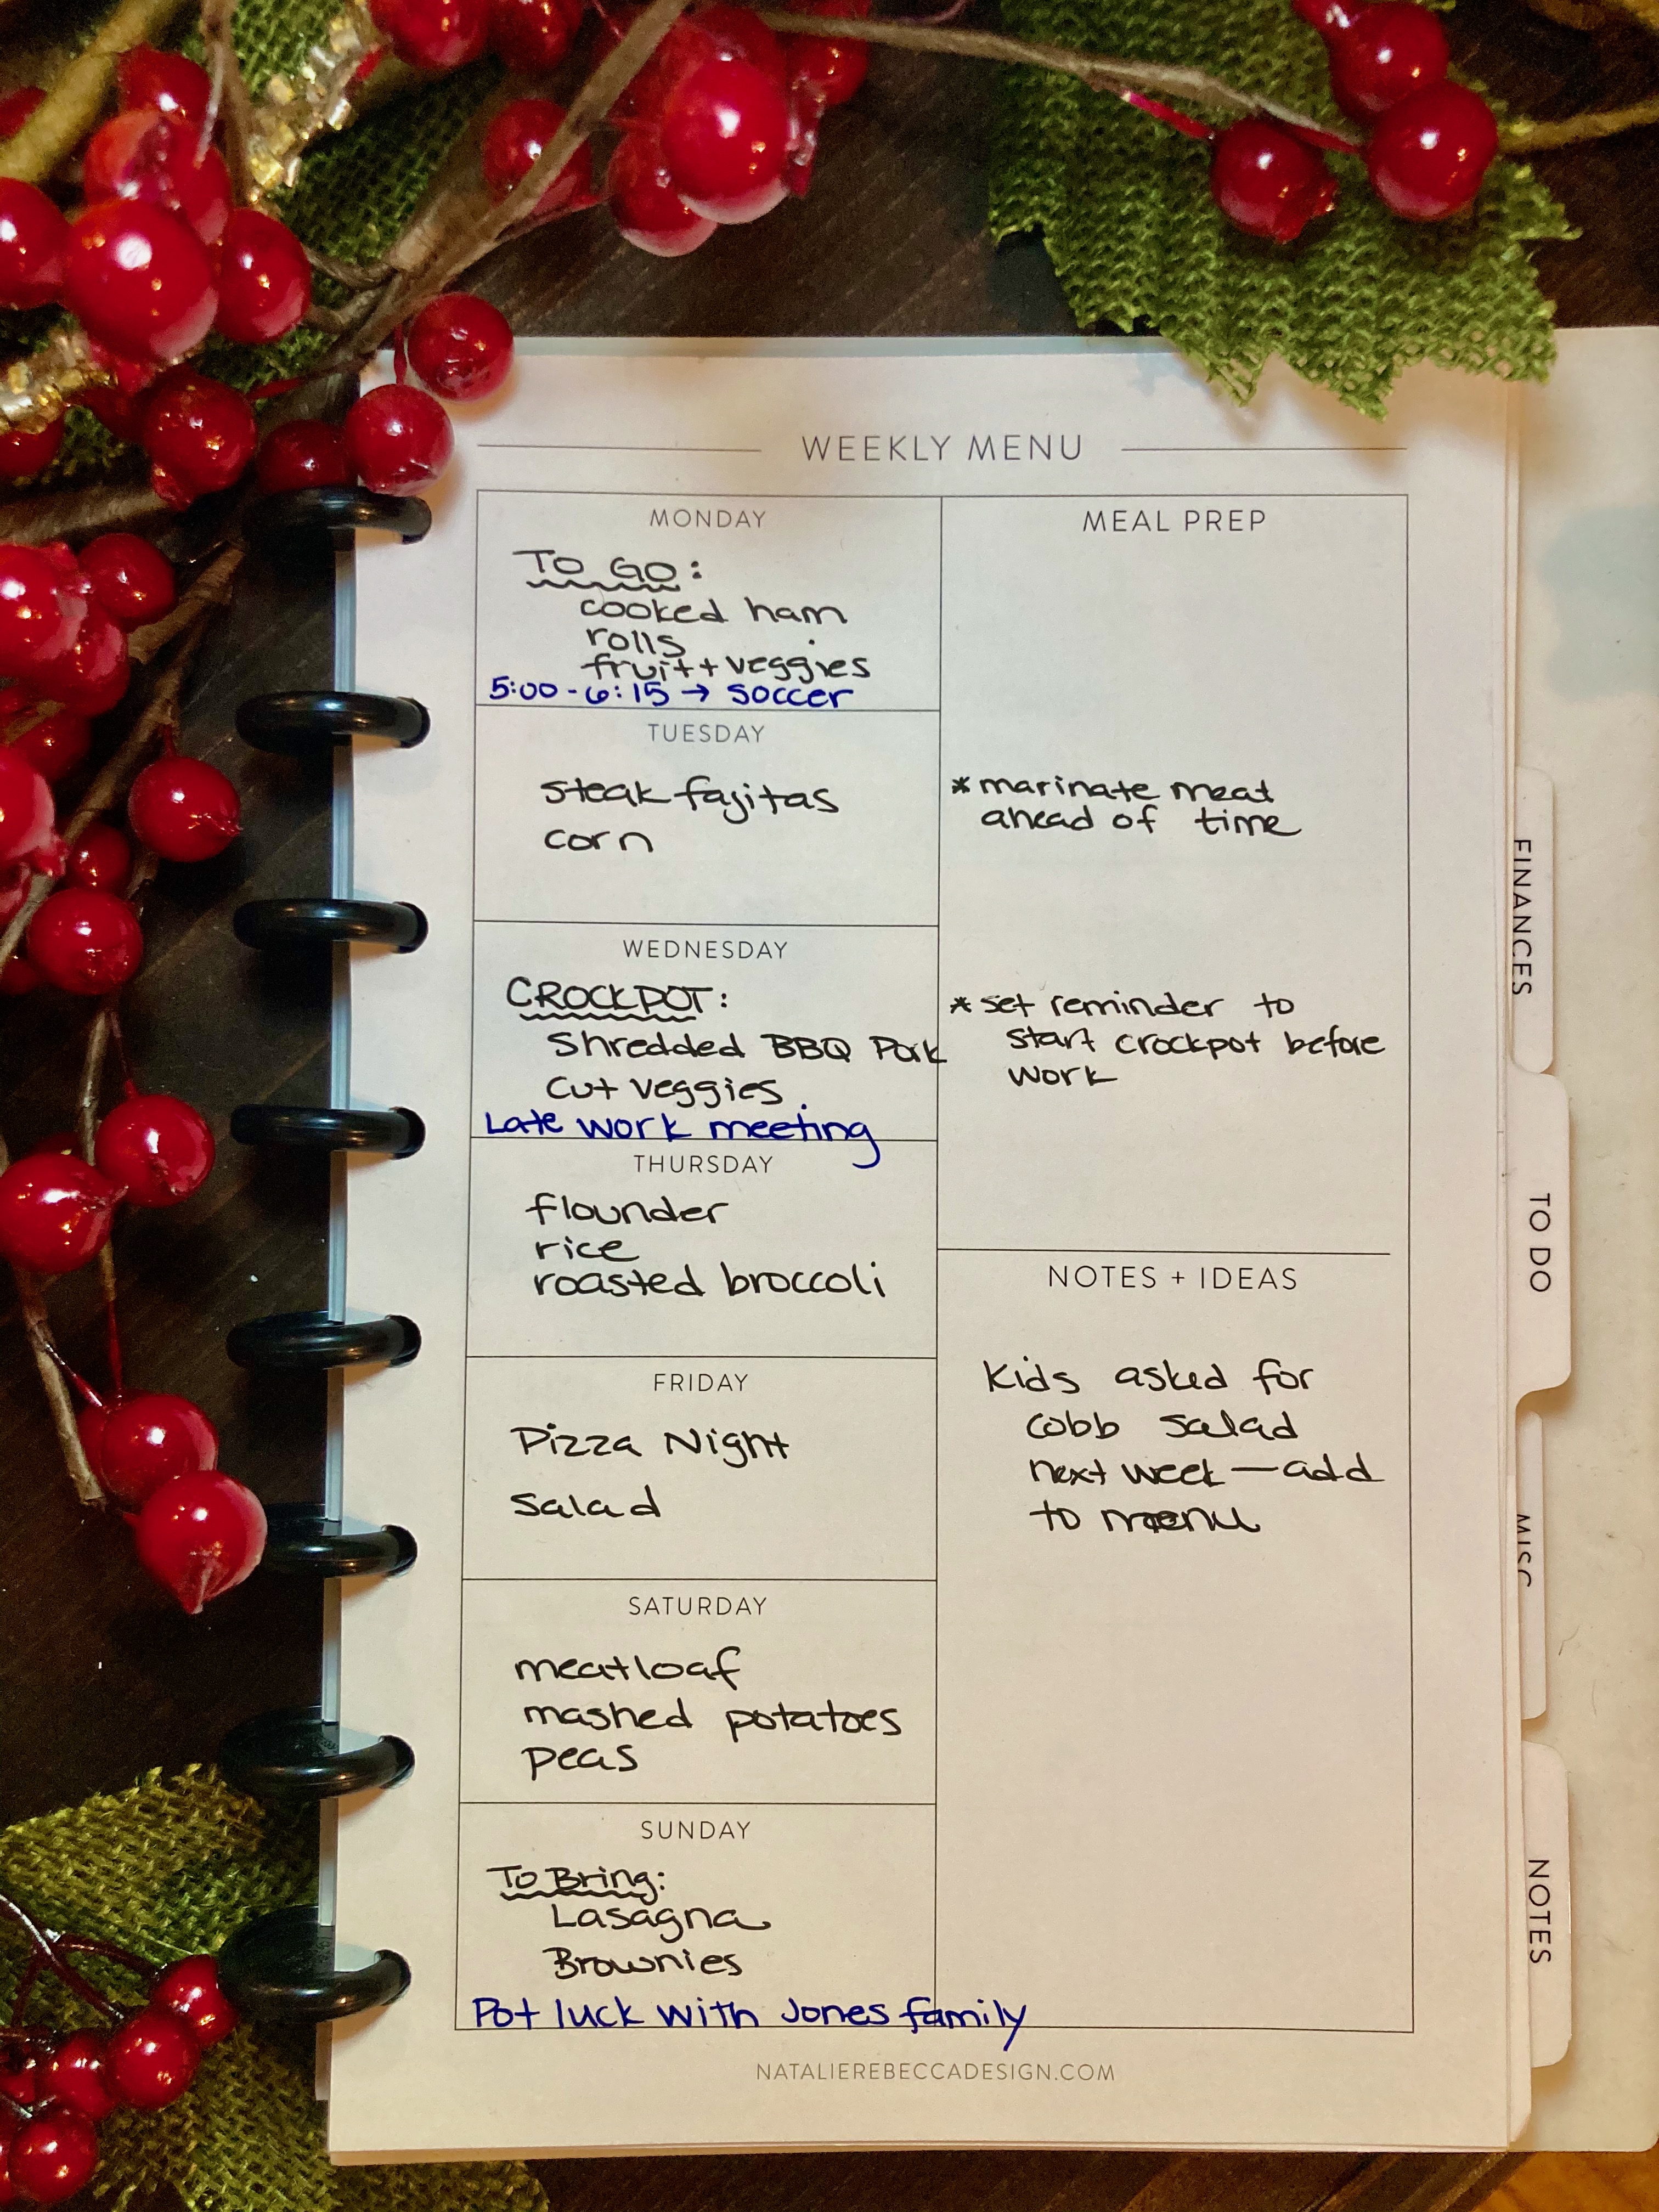 WEEKLY MENU
MONDAY
TO GO:
cooked ham
rolls
fruit + veggies
5:00 - 6:15 → soccer
TUESDAY
steak fajitas
corn
WEDNESDAY
CROCKPOT:
Shredded BBQ Pork
cut veggies
Late work meeting
THURSDAY
flounder
rice
roasted broccoli
FRIDAY
Pizza Night
Salad
SATURDAY
meatloaf
mashed potatoes
peas
SUNDAY
To Bring:
Lasagna
Brownies
Pot luck with Jones family
MEAL PREP
* marinate meat
ahead of time
* set reminder to
start crockpot before
work
NOTES + IDEAS
Kids asked for
cobb salad
next week — add
to menu
NATALIEREBECCADESIGN.COM
FINANCES
TO DO
MISC
NOTES